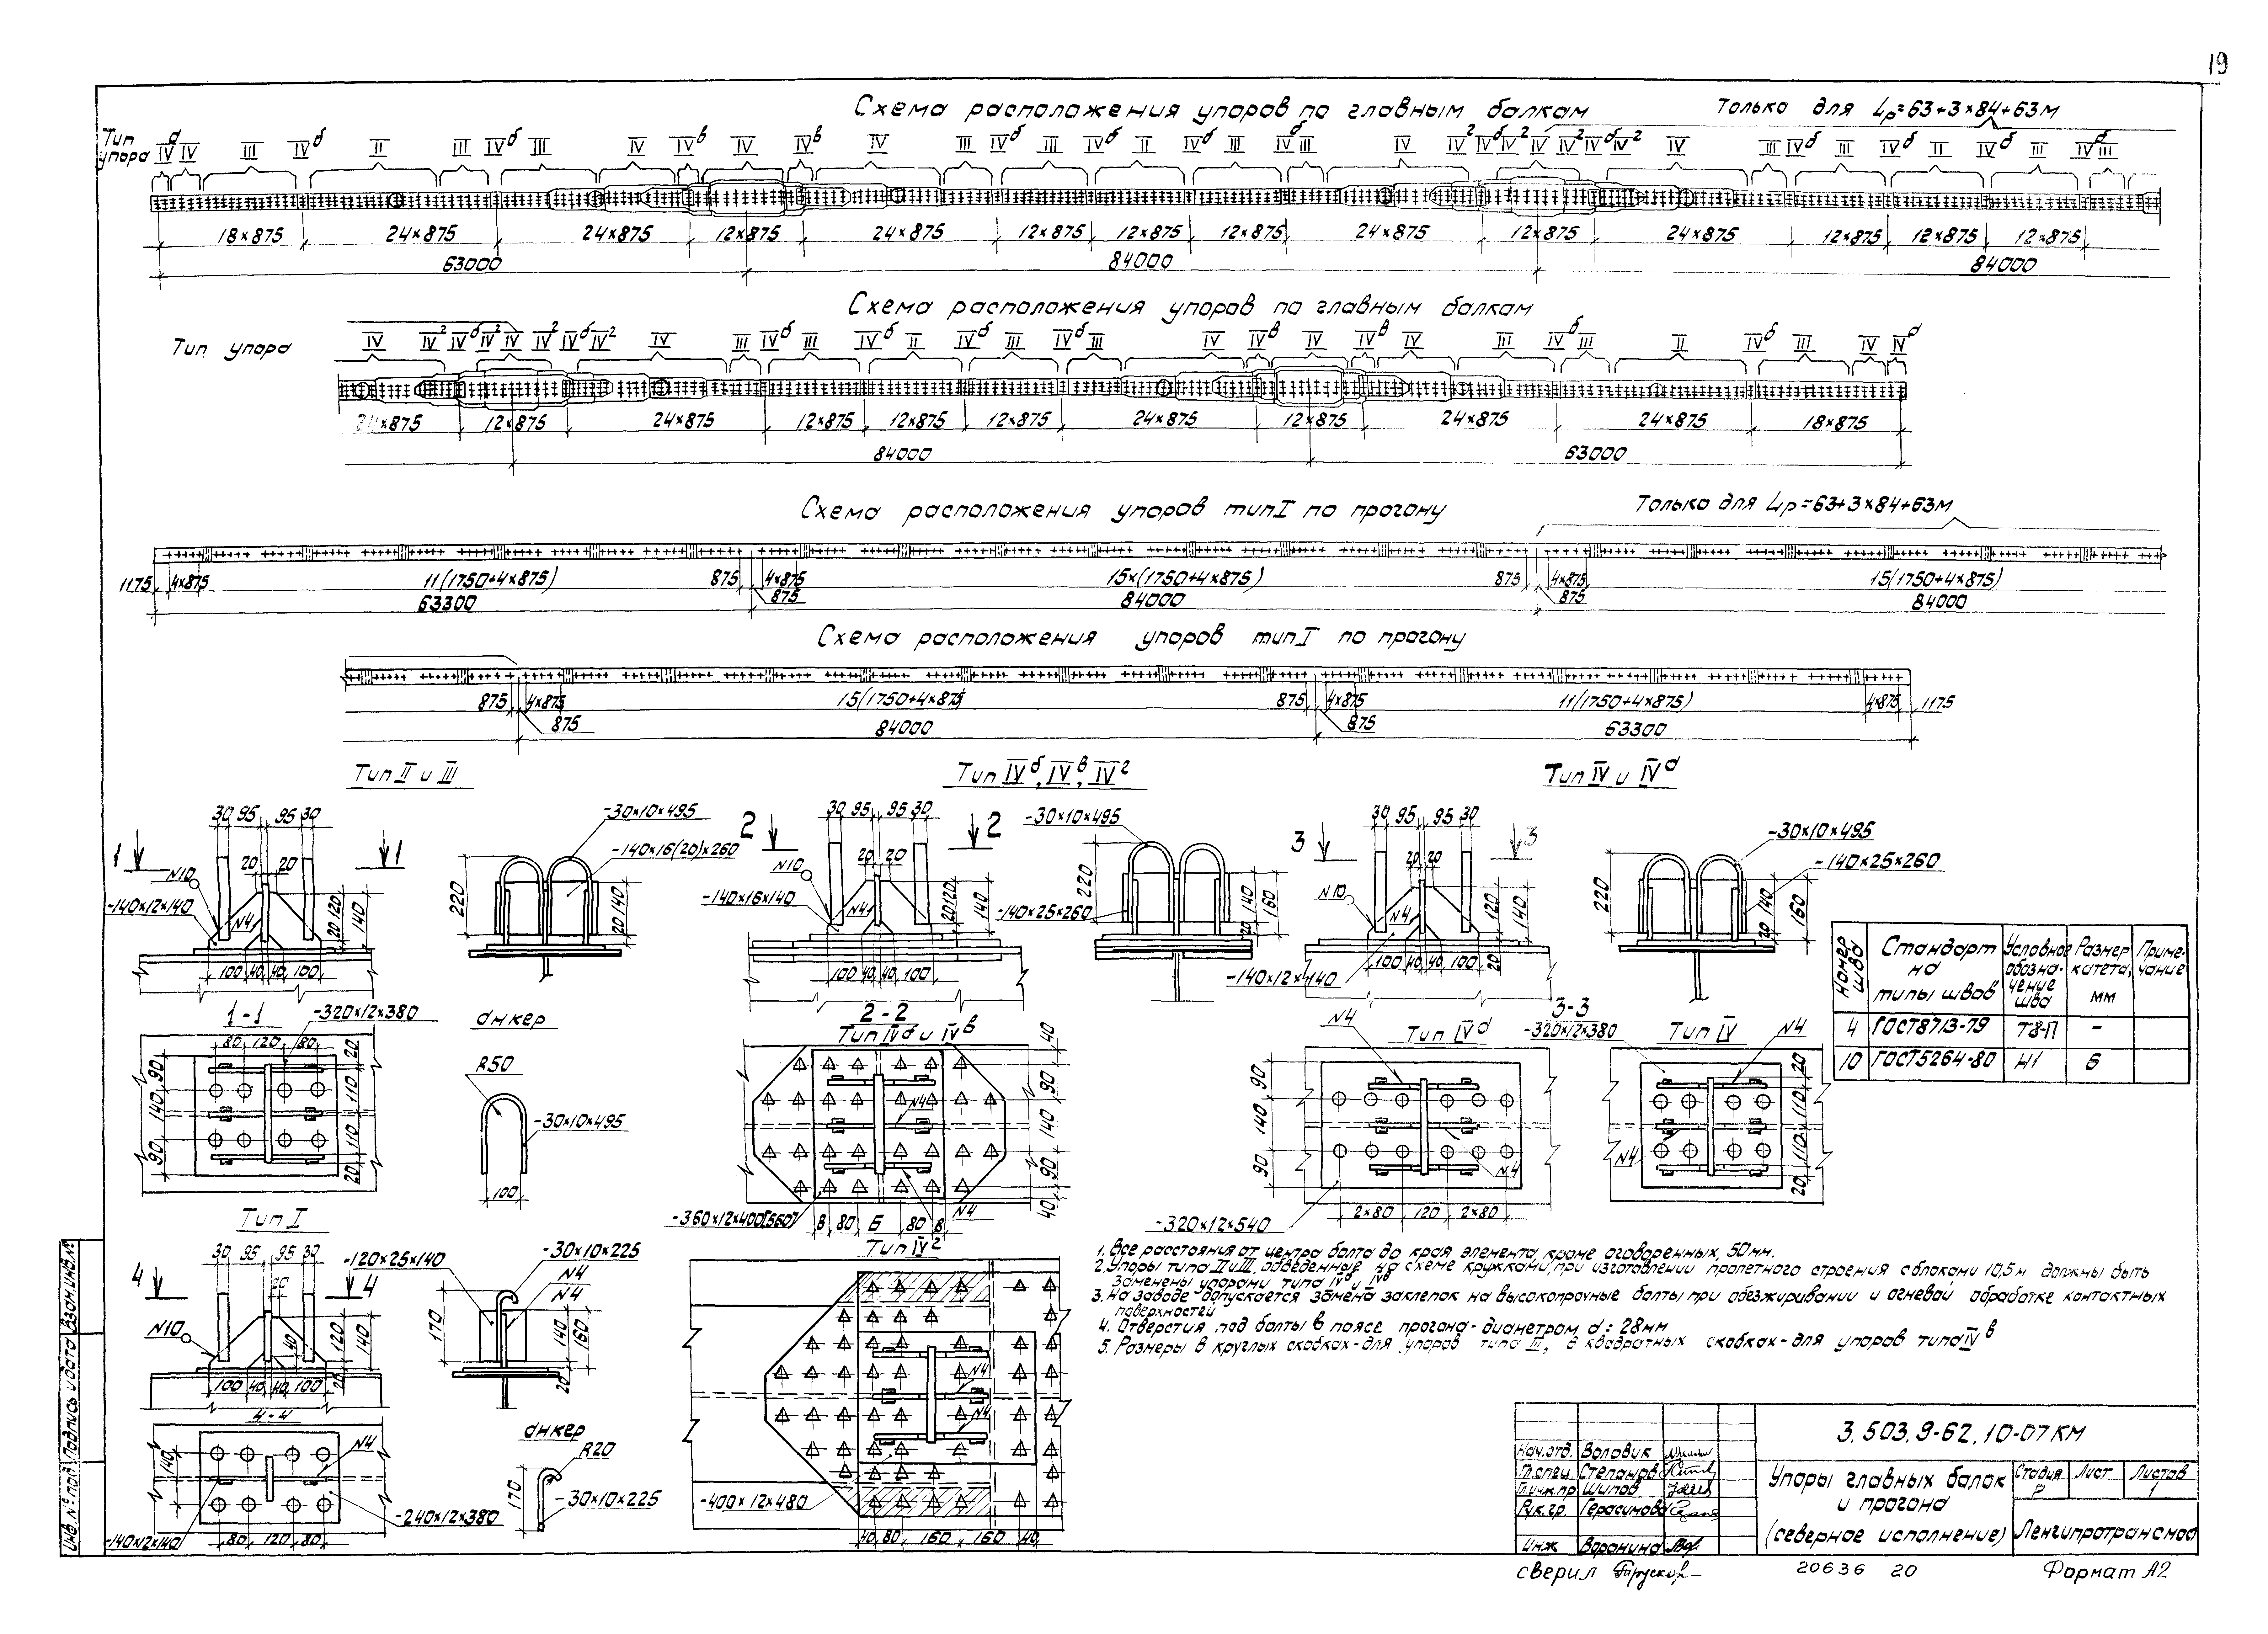 19
Схема расположения упоров по главным балкам
Только для Lр=63+3×84+63м
Тип упора
IVа IV III IVб II III IVб III IV IVв IV IVв IV III IVб III IVб II IVб III IVб III IV IVг IVб IVг IV IVг IVб IVг IV III IVб III IVб II IVб III IVб III
18×875 24×875 24×875 12×875 24×875 12×875 12×875 12×875 24×875 12×875 24×875 12×875 12×875 12×875
63000 84000 84000
Схема расположения упоров по главным балкам
Тип упора
IV IVг IVб IVг IV IVг IVб IVг IV III IVб III IVб II IVб III IVб III IV IVв IV IVв IV III IVб III II IVб III IV IVа
24×875 12×875 24×875 12×875 12×875 12×875 24×875 12×875 24×875 24×875 18×875
84000 63000
Схема расположения упоров тип I по прогону
Только для Lр=63+3×84+63м
1175 4×875 11(1750+4×875) 875 4×875 15×(1750+4×875) 875 4×875 15(1750+4×875)
875 875
63300 84000 84000
Схема расположения упоров тип I по прогону
875 4×875 15(1750+4×875) 875 4×875 11(1750+4×875) 4×875 1175
875 875
84000 63300
Тип II и III
30 95 95 30
1 1
20 20
N10
-140×12×140
N4
20 120
140
100 40 40 100
-30×10×495
-140×16(20)×260
220
20 140
1-1
-320×12×380
80 120 80
90 140 90
20 110 110 20
анкер
R50
-30×10×495
100
Тип IVб, IVв, IVг
2 2
30 95 95 30
20 20
N10
-140×16×140
N4
20 120
140
100 40 40 100
-30×10×495
220
-140×25×260
20 140
160
2-2
Тип IVб и IVв
N4
40 90 140 90 40
-360×12×400[560]
8 80 Б 80 8
N4
Тип IVг
N4
N4
-400×12×480
40 80 160 160 40
Тип IV и IVа
3 3
30 95 95 30
20 20
N10
N4
-140×12×140
120
140
20
100 40 40 100
-30×10×495
-140×25×260
220
20 140
160
3-3
Тип IVа
N4
90 140 90
N4
-320×12×540
2×80 120 2×80
-320×12×380
Тип IV
N4
N4
20 110 110 20
Номер шва Стандарт на типы швов Условное обозначение шва Размер катета, мм Примечание
4 ГОСТ8713-79 Т8-П -
10 ГОСТ5264-80 Н1 6
Тип I
30 95 95 30
4 4
20
N10
40
120
140
20
100 40 40 100
-120×25×140
-30×10×225
N4
N4
170
140
160
20
4-4
140
N4
-240×12×380
-140×12×140
80 120 80
анкер
R20
170
-30×10×225
1. Все расстояния от центра болта до края элемента, кроме оговоренных, 50мм.
2. Упоры типа II и III, обведенные на схеме кружками, при изготовлении пролетного строения с блоками 10,5м должны быть
заменены упорами типа IVб и IVв
3. На заводе допускается замена заклепок на высокопрочные болты при обезжиривании и огневой обработке контактных
поверхностей
4. Отверстия под болты в поясе прогона-диаметром d=28мм
5. Размеры в круглых скобках-для упоров типа III, в квадратных скобках-для упоров типа IVв
3.503.9-62.10-07КМ
Нач.отд. Воловик
Гл.спец. Степанов
Гл.инж.пр. Шипов
Рук.гр. Герасимова
Инж Воронина
Упоры главных балок
и прогона
(северное исполнение)
Стадия Лист Листов
Р 1
Ленгипротрансмост
Инв.№ под Подпись и дата Взам.инв.№
сверил
20636 20
Формат А2